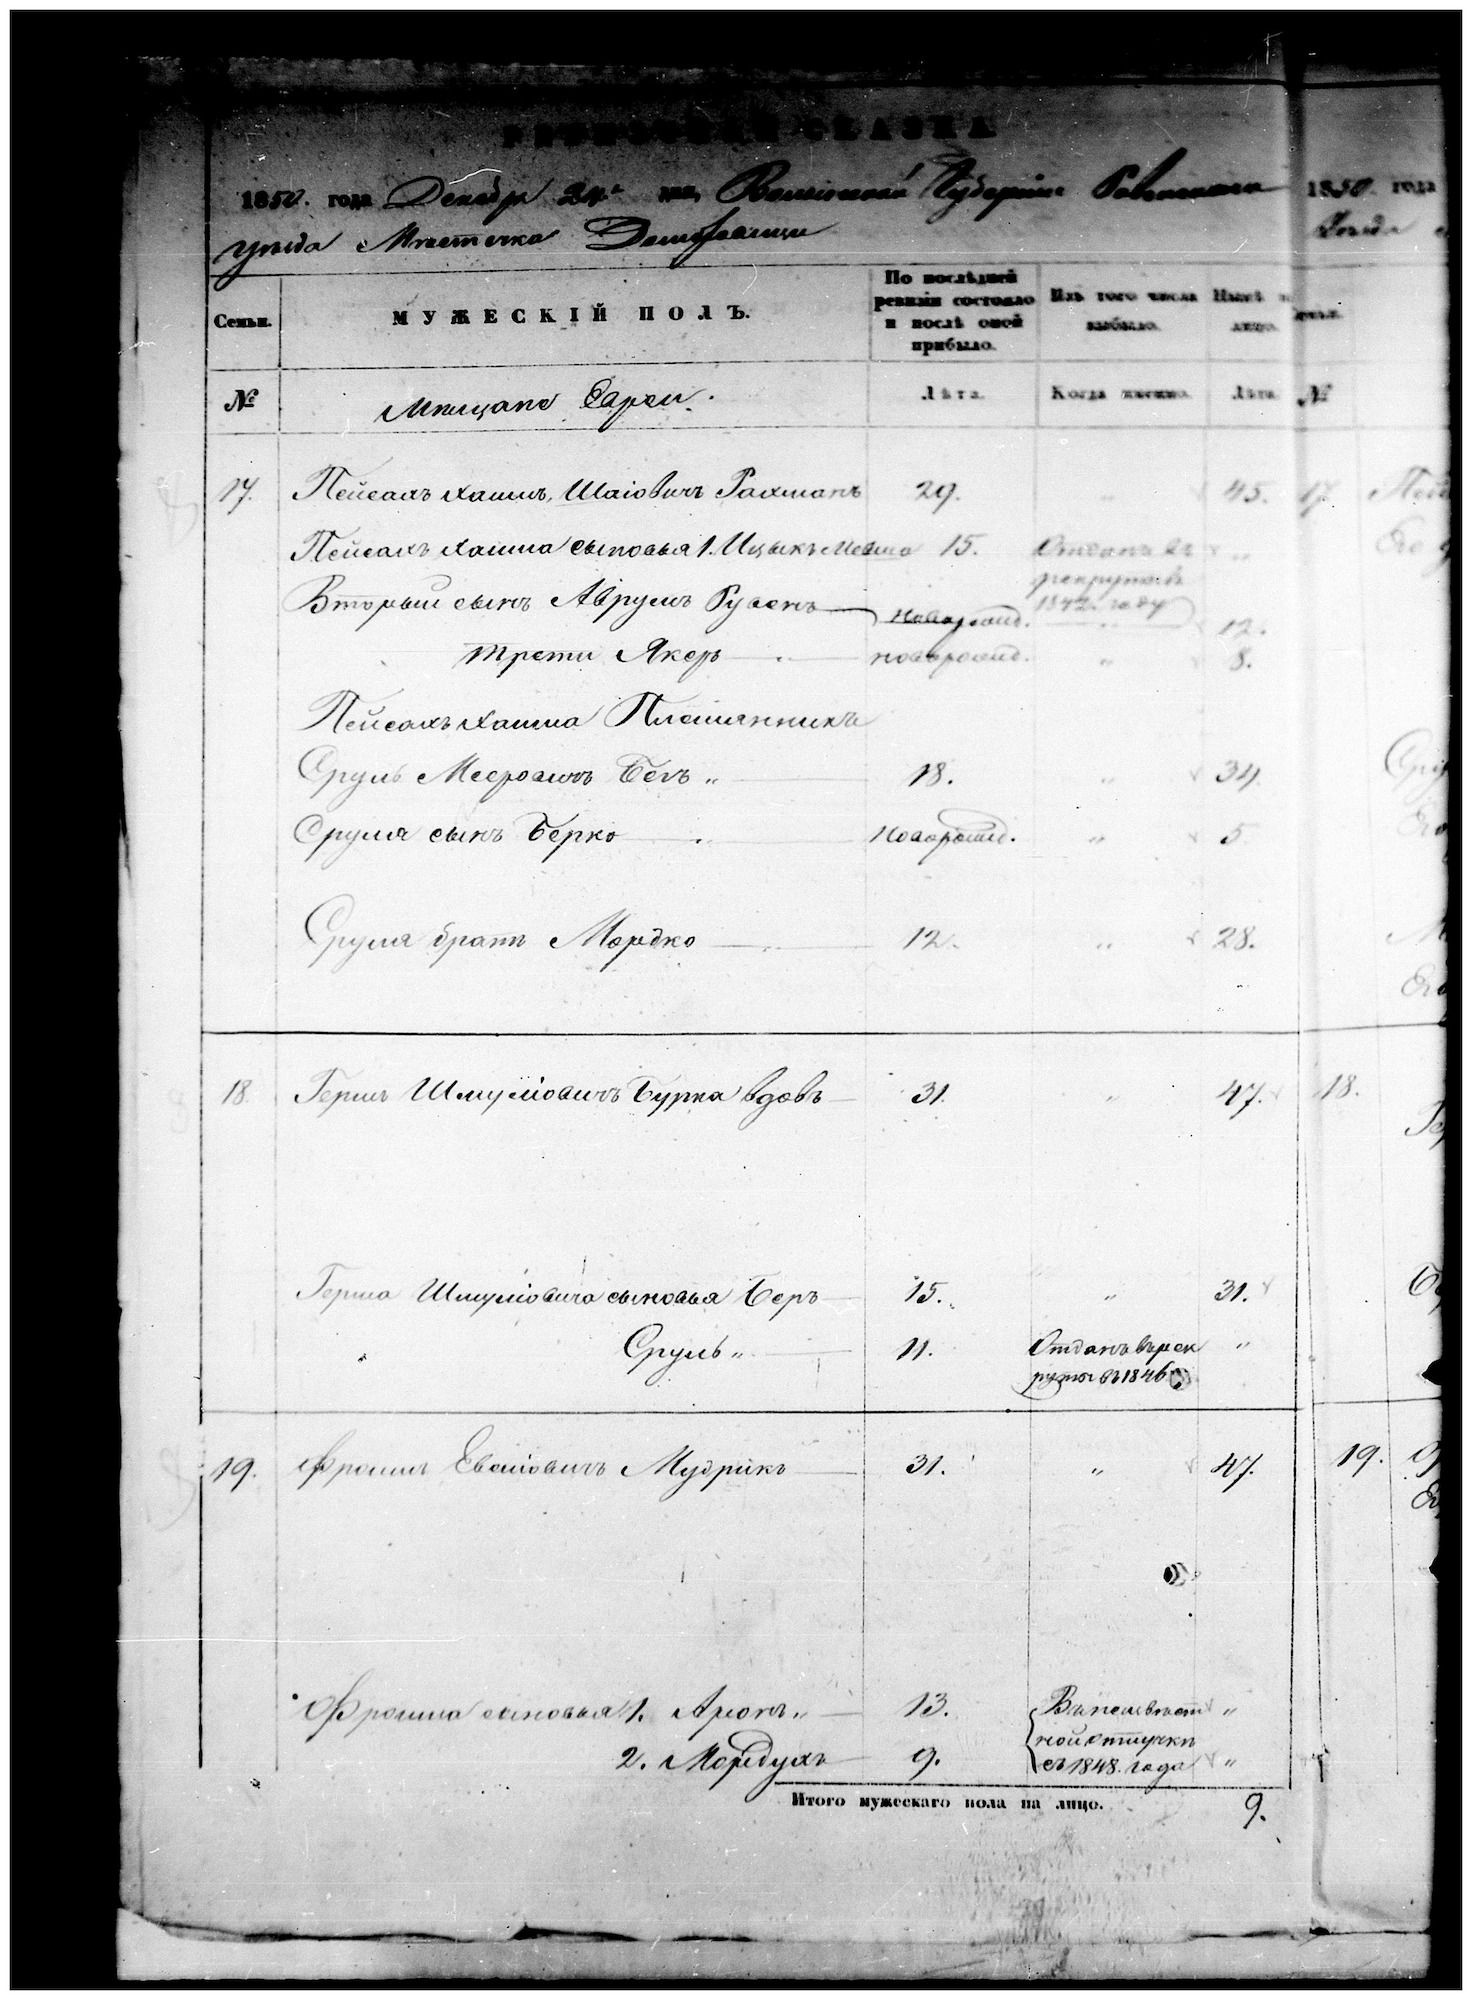 РЕВИЗСКАЯ СКАЗКА
1850. года Декабря 24го дня, Волынской Губернiи Ровенского
уѣзда Мѣстечка
1850 года
Уѣзда
Семьи.
МУЖЕСКIЙ ПОЛЪ.
По послѣдней ревизiи состояло и послѣ оной прибыло.
Изъ того числа выбыло.
Нынѣ на лицо.
Семьи.
№
Мещане Евреи.
Лѣта.
Когда именно.
Лѣта
№
17. Пейсахъ Хаимъ, Шаiовичъ Рахманъ 29. „ 45. 17.
Пейсахъ Хаима сыновья 1. Ицыкъ 15. Отданъ въ „
рекруты въ
Вторый сынъ Аврумъ Рувенъ новорожд. 1842. году 12.
трети Якеръ новорожд. „ 8.
Пейсахъ Хаима Племянникъ
Сруль Мееровичъ Бегъ „ 18. „ 34.
Сруля сынъ Берко „ новорожд. „ 5
Сруля братъ Мордко „ 12. „ 28.
18. Герш Шмулiовичъ Бурка вдовъ 31. „ 47. 18.
Герша Шмулiовича сыновья Беръ 15. „ 31.
Сруль „ 11. Отданъ въ рек „
руты въ 1846
19. Фроимъ Евелiовичъ Мудрикъ 31. „ 47. 19.
Фроима сыновья 1. Аронъ „ 13. Въ неизвѣст „
ной отлучкѣ
2. Мордухъ 9. съ 1848. года „
Итого мужескаго пола на лицо. 9.